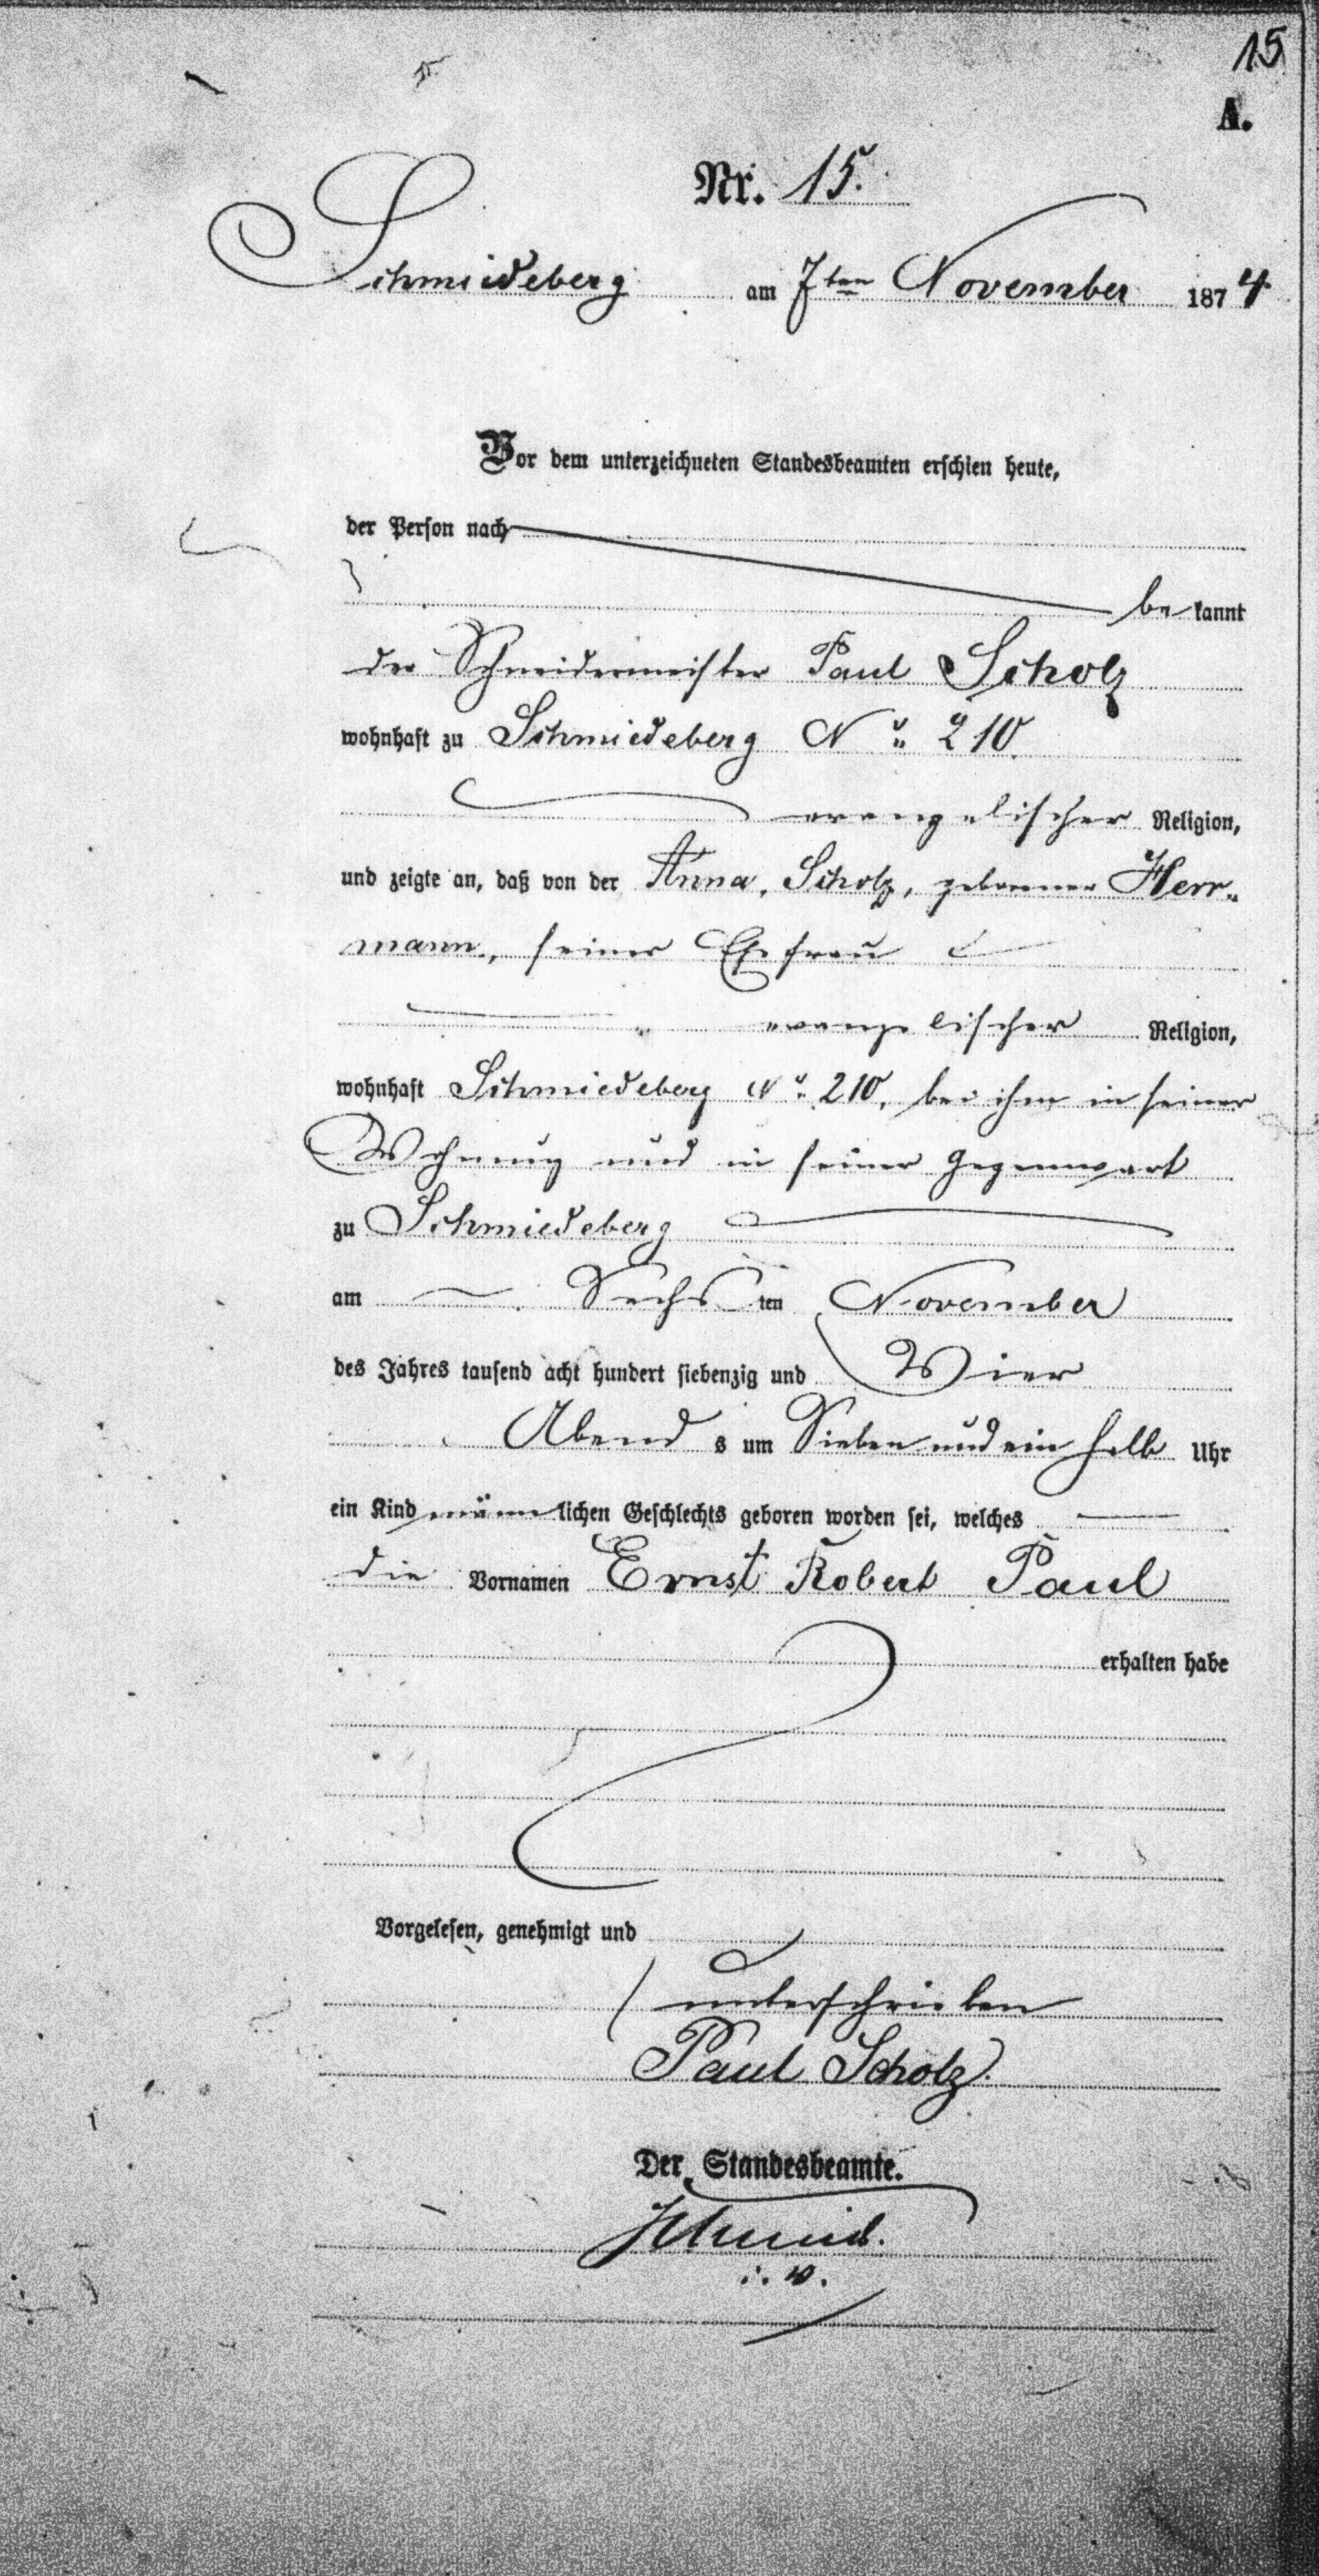 15
A.
Nr. 15.
Schmiedeberg am 7ten November 1874
Vor dem unterzeichneten Standesbeamten erschien heute,
der Person nach
bekannt
der Schneidermeister Paul Scholz
wohnhaft zu Schmiedeberg No 210
evangelischer Religion,
und zeigte an, daß von der Anna, Scholz, geborener Herr-
mann, seiner Ehefrau
evangelischer Religion,
wohnhaft Schmiedeberg No 210, bei ihm in seiner
Wohnung und in seiner Gegenwart
zu Schmiedeberg
am Sechsten November
des Jahres tausend acht hundert siebenzig und Vier
Abends um Sieben und ein halb Uhr
ein Kind männlichen Geschlechts geboren worden sei, welches
die Vornamen Ernst Robert Paul
erhalten habe
Vorgelesen, genehmigt und
unterschrieben
Paul Scholz.
Der Standesbeamte.